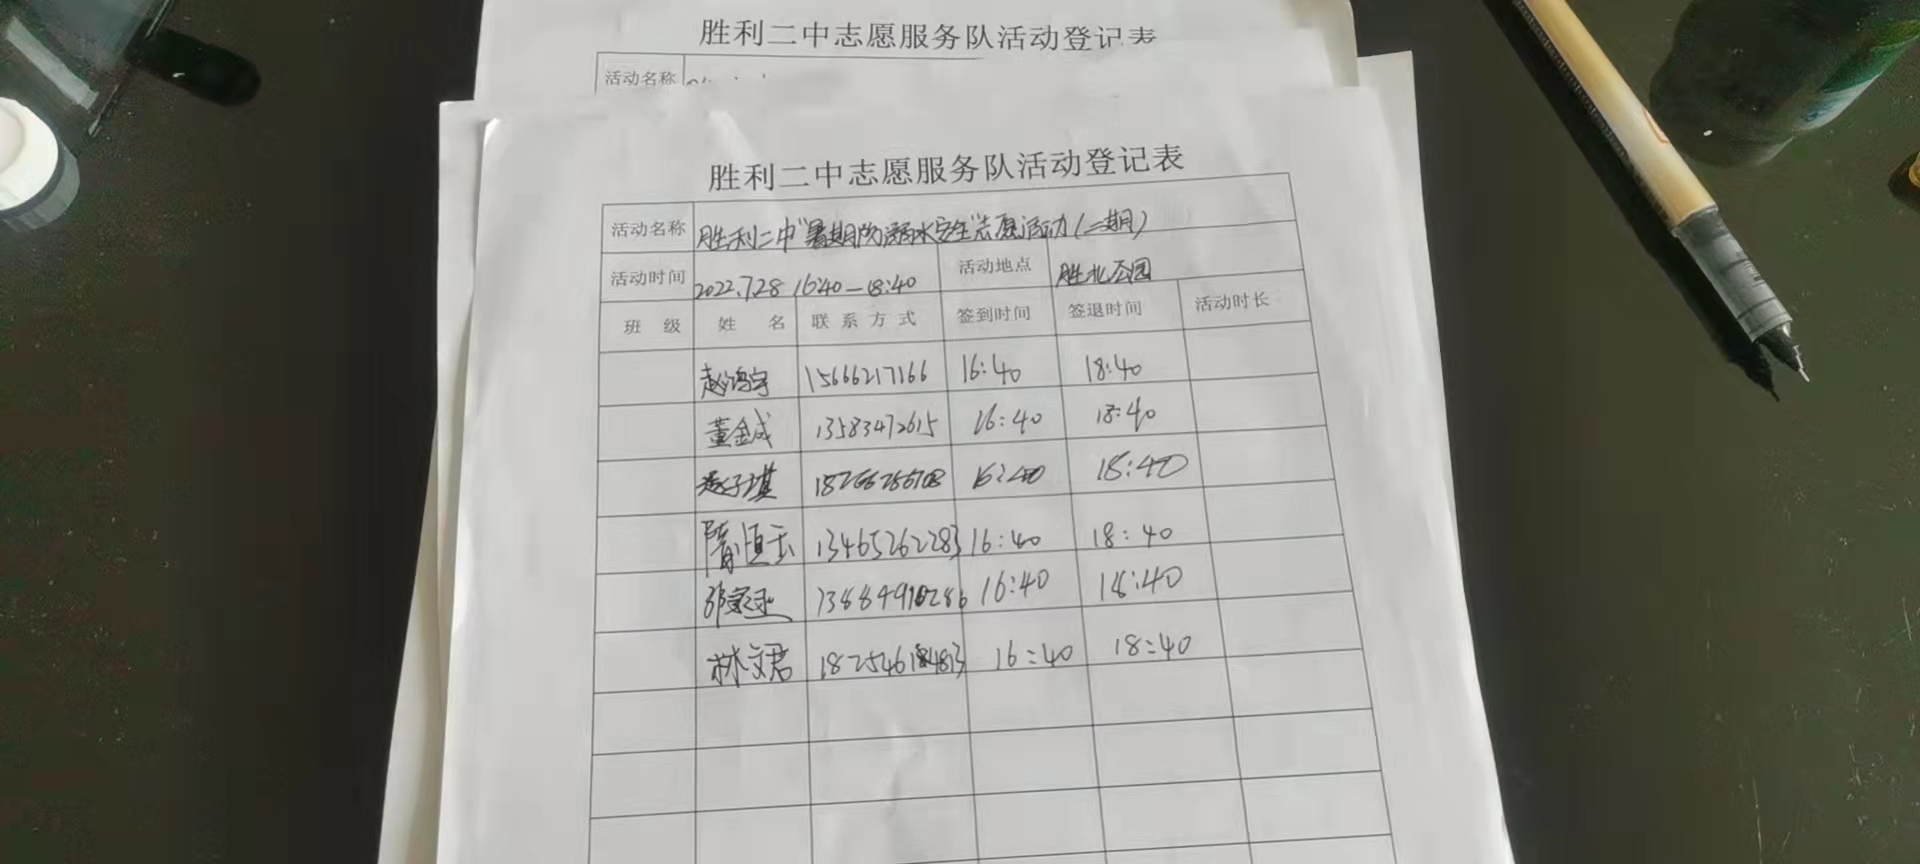 胜利二中志愿服务队活动登记表
活动名称
胜利二中志愿服务队活动登记表
活动名称 胜利二中"暑期防溺水安全"志愿活动(二期)
活动时间 2022.7.28 16:40—18:40 活动地点 胜北公园
班 级 姓 名 联 系 方 式 签到时间 签退时间 活动时长
赵鸿宇 15666217166 16:40 18:40
董金成 13583472615 16:40 18:40
赵子琪 16:40 18:40
隋恒玉 13465262283 16:40 18:40
16:40 18:40
林文君 16:40 18:40